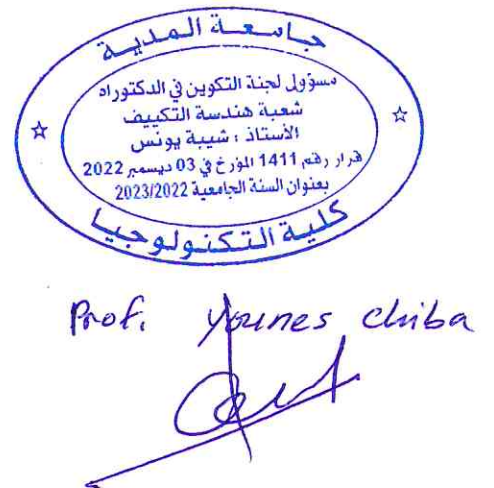 جامعة المدية
مسؤول لجنة التكوين في الدكتوراه
شعبة هندسة التكييف
الأستاذ : شيبة يونس
قرار رقم 1411 المؤرخ في 03 ديسمبر 2022
بعنوان السنة الجامعية 2023/2022
كلية التكنولوجيا
Prof. Younes Chiba